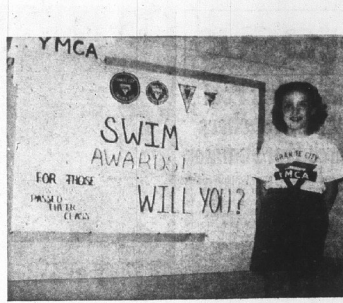 YMCA
SWIM
AWARDS!
FOR THOSE
PASSED
THEIR
CLASS
WILL YOU?
CITY
YMCA